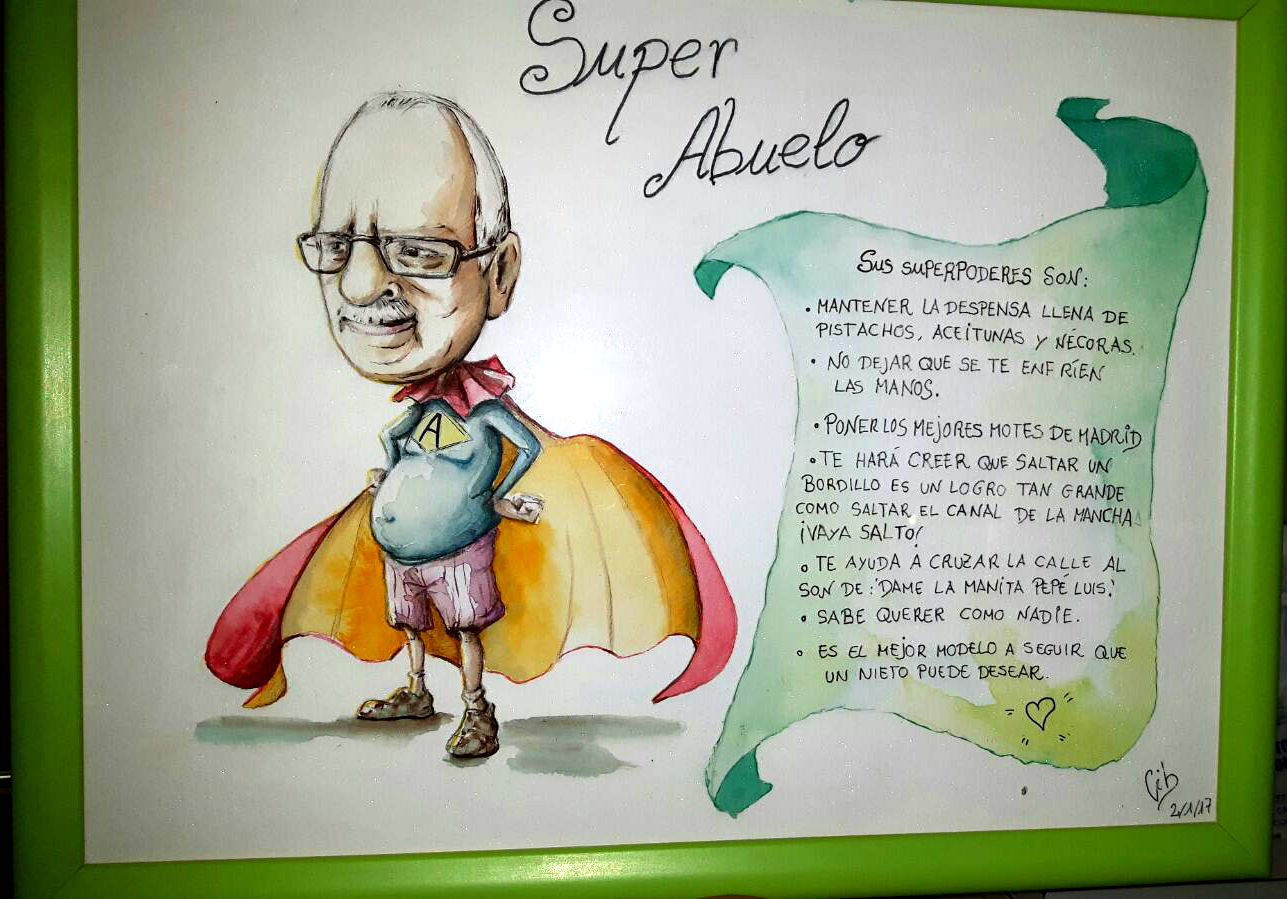 Super
Abuelo
A
SUS SUPERPODERES SON:
• MANTENER LA DESPENSA LLENA DE
PISTACHOS, ACEITUNAS Y NÉCORAS.
• NO DEJAR QUE SE TE ENFRÍEN
LAS MANOS.
• PONER LOS MEJORES MOTES DE MADRID
• TE HARÁ CREER QUE SALTAR UN
BORDILLO ES UN LOGRO TAN GRANDE
COMO SALTAR EL CANAL DE LA MANCHA
¡VAYA SALTO!
• TE AYUDA A CRUZAR LA CALLE AL
SON DE: "DAME LA MANITA PEPÉ LUIS."
• SABE QUERER COMO NADIE.
• ES EL MEJOR MODELO A SEGUIR QUE
UN NIETO PUEDE DESEAR.
Cib
2/1/17